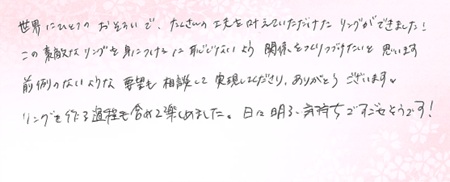 世界にひとつのおそろいで、たくさんの工夫を叶えていただけたリングができました！
この素敵なリングを身につけるに恥じないよう 関係をつくりつづけたいと思います
前例のないような 要望も 相談して 実現してくださり、ありがとう ございます。
リングを作る過程も含めて楽しめました。 日に 明るい気持ちですごせそうです！